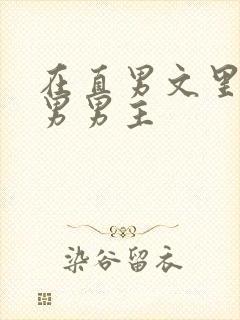 在直男文里
男男主
染谷留衣